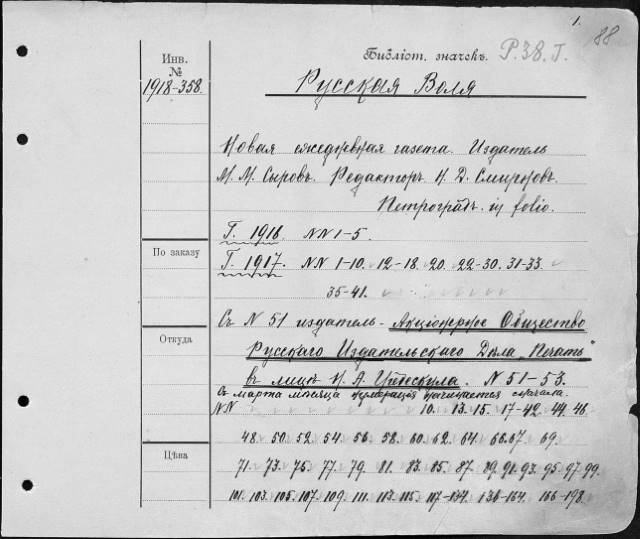 1.
88
Библіот. значекъ. P.38.Г.
Инв.
№
1918-358.
Русская Воля
Новая ежедневная газета. Издатель
М. М. Сыровъ. Редакторъ И. Д. Смирновъ.
Петроградъ. in folio.
Г. 1916. NN 1-5.
По заказу
Г. 1917. NN 1-10. 12-18. 20. 22-30. 31-33.
35-41.
Съ N 51 издатель - Акціонерное Общество
Откуда
Русскаго Издательскаго Дѣла „Печать"
въ лицѣ А. N 51-53.
Съ марта мѣсяца нумерація начинается сначала.
NN 10. 13. 15. 17-42. 44. 46.
48. 50. 52. 54. 56. 58. 60. 62. 64. 66. 67. 69.
Цѣна
71. 73. 75. 77. 79. 81. 83. 85. 87. 89. 91. 93. 95. 97. 99.
101. 103. 105. 107. 109. 111. 113. 115. 117-134. 136-164. 166-198.